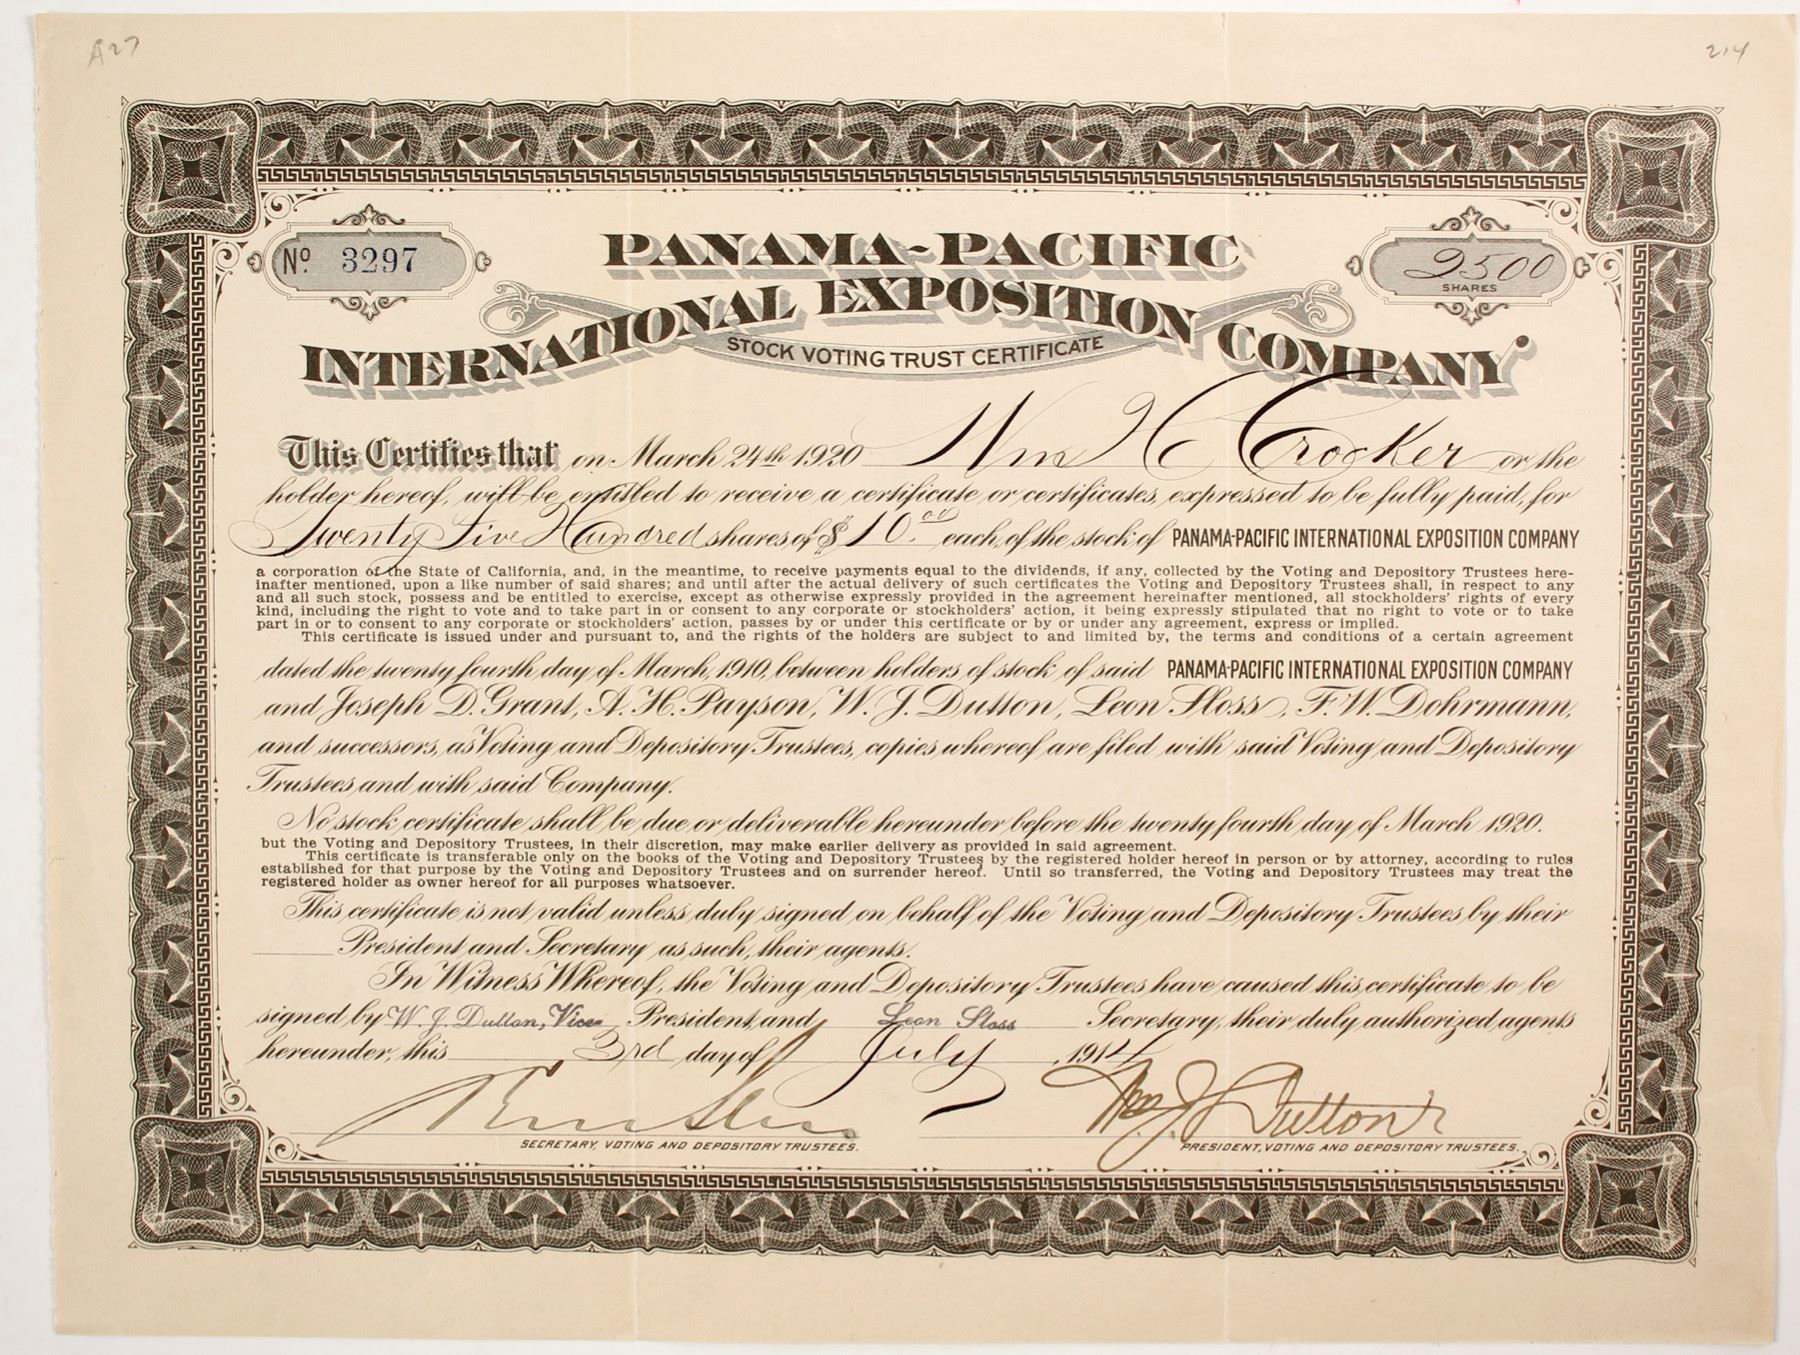 A27
214
No. 3297
2500
SHARES
PANAMA-PACIFIC
INTERNATIONAL EXPOSITION COMPANY.
STOCK VOTING TRUST CERTIFICATE
This Certifies that on March 24th 1920 Wm H Crocker or the
holder hereof, will be entitled to receive a certificate or certificates, expressed to be fully paid, for
Twenty Five Hundred shares of $10.00 each, of the stock of PANAMA-PACIFIC INTERNATIONAL EXPOSITION COMPANY
a corporation of the State of California, and, in the meantime, to receive payments equal to the dividends, if any, collected by the Voting and Depository Trustees here-
inafter mentioned, upon a like number of said shares; and until after the actual delivery of such certificates the Voting and Depository Trustees shall, in respect to any
and all such stock, possess and be entitled to exercise, except as otherwise expressly provided in the agreement hereinafter mentioned, all stockholders' rights of every
kind, including the right to vote and to take part in or consent to any corporate or stockholders' action, it being expressly stipulated that no right to vote or to take
part in or to consent to any corporate or stockholders' action, passes by or under this certificate or by or under any agreement, express or implied.
This certificate is issued under and pursuant to, and the rights of the holders are subject to and limited by, the terms and conditions of a certain agreement
dated the twenty fourth day of March, 1910, between holders of stock of said PANAMA-PACIFIC INTERNATIONAL EXPOSITION COMPANY
and Joseph D. Grant, A. H. Payson, W. J. Dutton, Leon Sloss, F. W. Dohrmann,
and successors, as Voting and Depository Trustees, copies whereof are filed with said Voting and Depository
Trustees and with said Company.
No stock certificate shall be due or deliverable hereunder before the twenty fourth day of March 1920.
but the Voting and Depository Trustees, in their discretion, may make earlier delivery as provided in said agreement.
This certificate is transferable only on the books of the Voting and Depository Trustees by the registered holder hereof in person or by attorney, according to rules
established for that purpose by the Voting and Depository Trustees and on surrender hereof. Until so transferred, the Voting and Depository Trustees may treat the
registered holder as owner hereof for all purposes whatsoever.
This certificate is not valid unless duly signed on behalf of the Voting and Depository Trustees by their
President and Secretary as such, their agents.
In Witness Whereof, the Voting and Depository Trustees, have caused this certificate to be
signed by W. J. Dutton, Vice- President, and Leon Sloss Secretary, their duly authorized agents
hereunder, this 3rd day of July, 1914
Leon Sloss
Wm J Dutton
SECRETARY, VOTING AND DEPOSITORY TRUSTEES.
PRESIDENT, VOTING AND DEPOSITORY TRUSTEES.